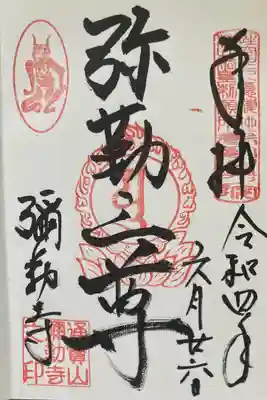 奉拝
令和四年
六月廿六日
弥勒三尊
彌勒寺
通寶山
彌勒寺
印